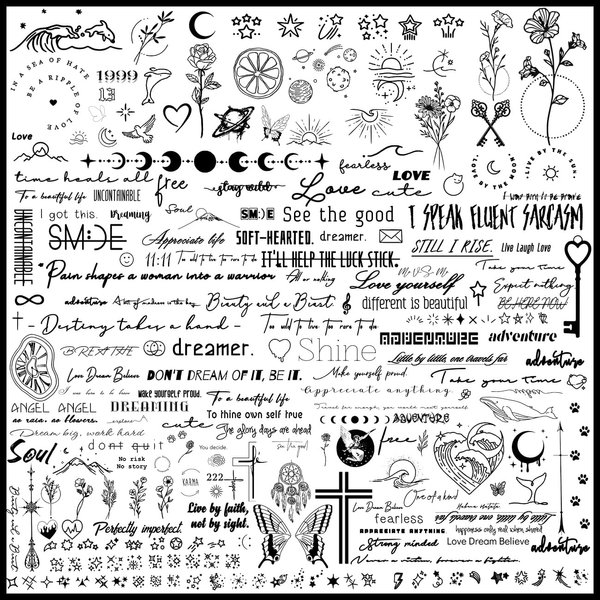 IN A SEA OF HATE
BE A RIPPLE OF LOVE
1999
13
Love
LIVE BY THE SUN
LOVE BY THE MOON
fearless
LOVE
time heals all
free
stay wild
Love
cute
To a beautiful life
UNCONTAINABLE
UNCONTAINABLE
I got this.
Dreaming
Soul
SM:)E
See the good
I SPEAK FLUENT SARCASM
SM:)E
Appreciate life
SOFT-HEARTED.
dreamer.
STILL I RISE.
Live Laugh Love
11:11
Too old to live too rare to do
IT'LL HELP THE LUCK STICK.
Me VS. Me
Take your Time
Pain shapes a woman into a warrior
All or nothing
Love yourself
Expect nothing
adventure
Beauty and a Beast
different is beautiful
BE HERE NOW
- Destiny takes a hand -
Too old to live Too rare to do
ADVENTURE
adventure
BREATHE
dreamer.
Shine
Little by little, one travels far
adventure
Love Dream Believe
DON'T DREAM OF IT, BE IT.
Make yourself proud.
Take your Time
Make yourself proud.
To a beautiful life
Appreciate anything
ANGEL
ANGEL
DREAMING
To thine own self true
no rain. no flowers.
cute
The glory days are ahead
ADVENTURE
Dream big, work hard
free
Soul
dont quit
No risk
No story
You decide.
KARMA
222
Beauty and a Beast
Perfectly imperfect.
Live by faith,
not by sight.
One of a kind
Love Dream Believe
Hakuna Matata
fearless
happiness only real when shared
Little by little, one travels far
APPRECIATE ANYTHING
Strong minded
Love Dream Believe
adventure
Never a victim, forever a fighter.